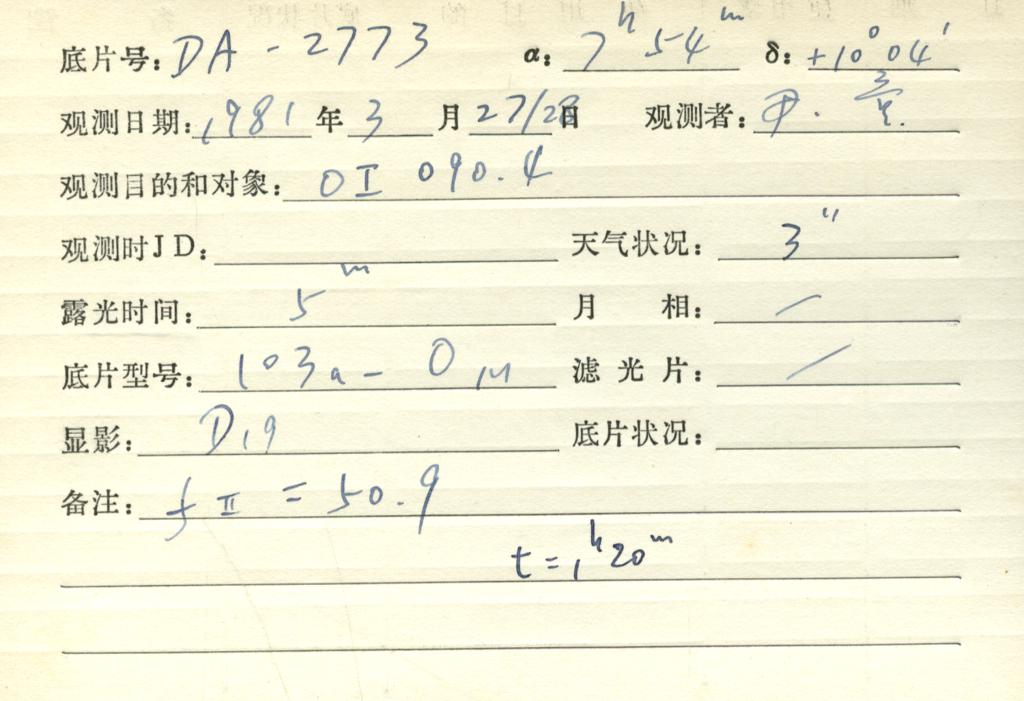 底片号: DA - 2773 α: 7ʰ 54ᵐ δ: +10° 04′
观测日期: 1981 年 3 月 27/28 日 观测者:
观测目的和对象: OI 090.4
观测时JD: 天气状况: 3″
露光时间: 5ᵐ 月 相: /
底片型号: 103a-O 滤光片: /
显影: D19 底片状况:
备注: fⅡ = 50.9
t = 1ʰ20ᵐ